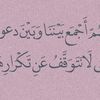 هُمْ أَجْمَعَ بَيْنَنَا وَبَيْنَ دعو
لَا نَتَوَقَّفُ عَنْ تَكْرَارِهَ